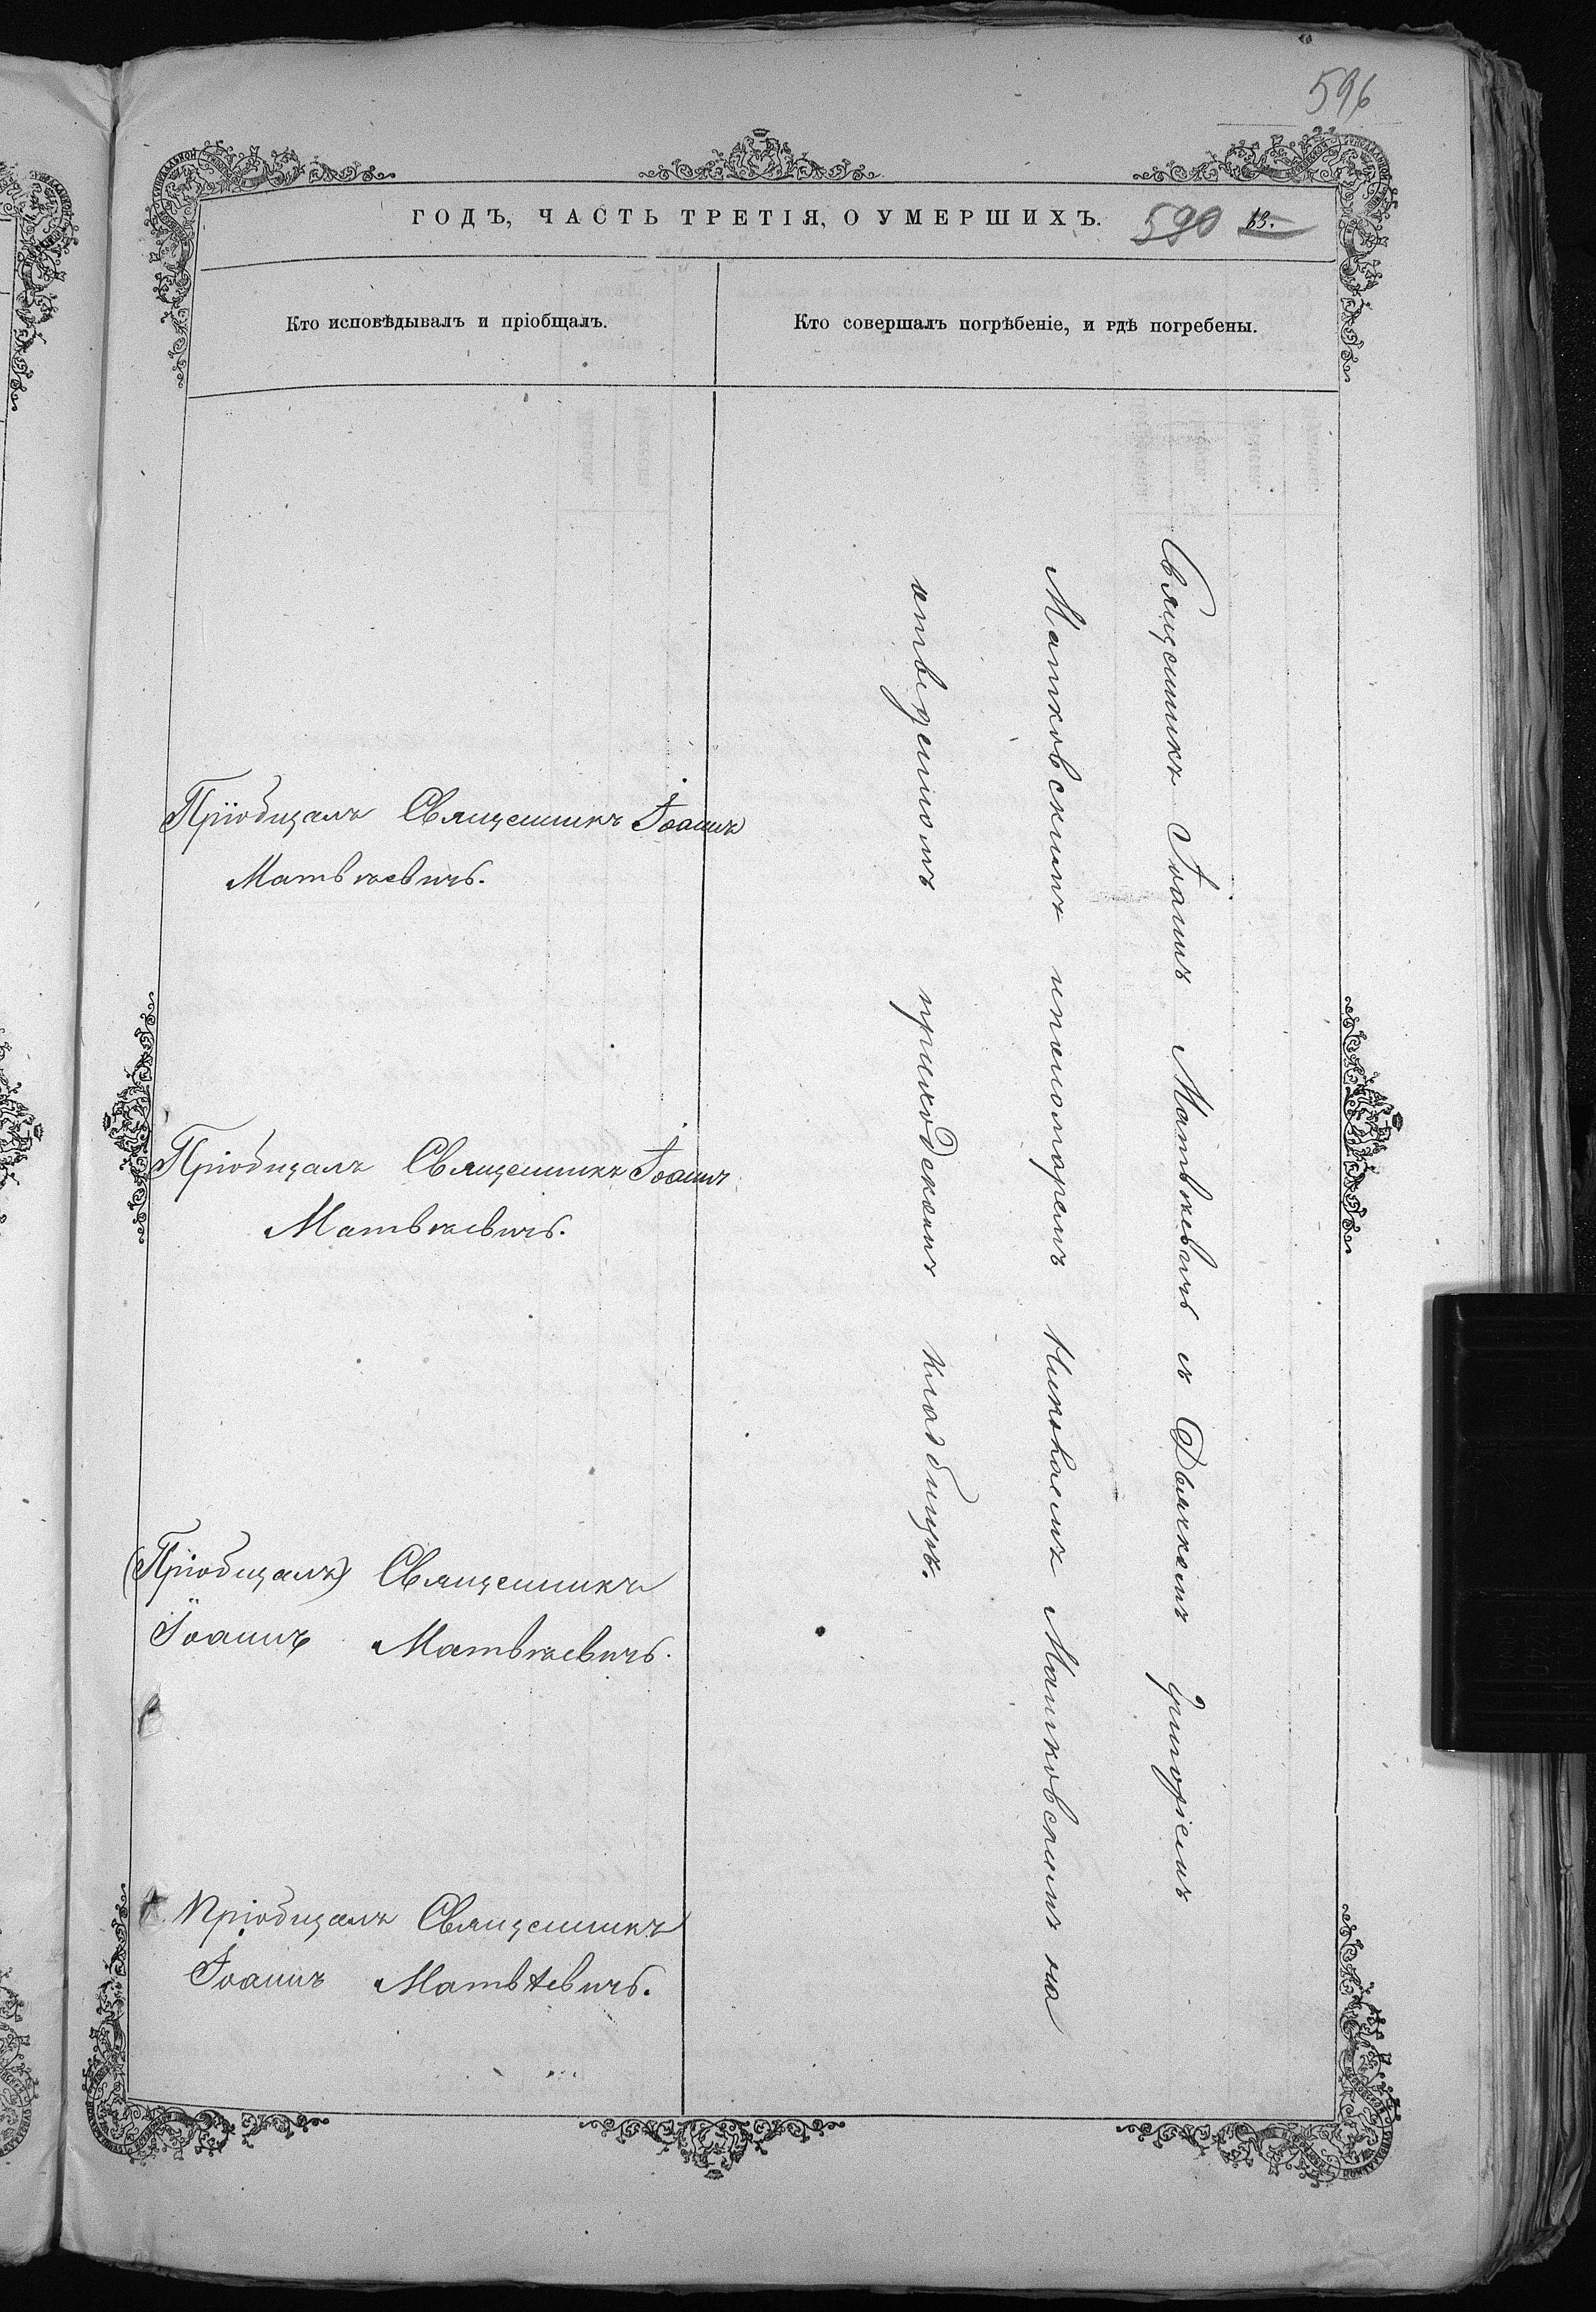 596
ГОДЪ, ЧАСТЬ ТРЕТІЯ, О УМЕРШИХЪ. 590 63.
Кто исповѣдывалъ и пріобщалъ.
Кто совершалъ погрѣбеніе, и гдѣ погребены.
Пріобщалъ Священникъ Іоаннъ
Матвѣевичъ.
Пріобщалъ Священникъ Іоаннъ
Матвѣевичъ.
(Пріобщалъ) Священникъ
Іоаннъ Матвѣевичъ.
Пріобщалъ Священникъ
Іоаннъ Матвѣевичъ.
Священникъ Іоаннъ Матвѣевичъ съ Дьячкомъ Григоріемъ
Матковскимъ ипономаремъ Николаемъ Матковскимъ на
отведенномъ приходскомъ кладбищѣ.